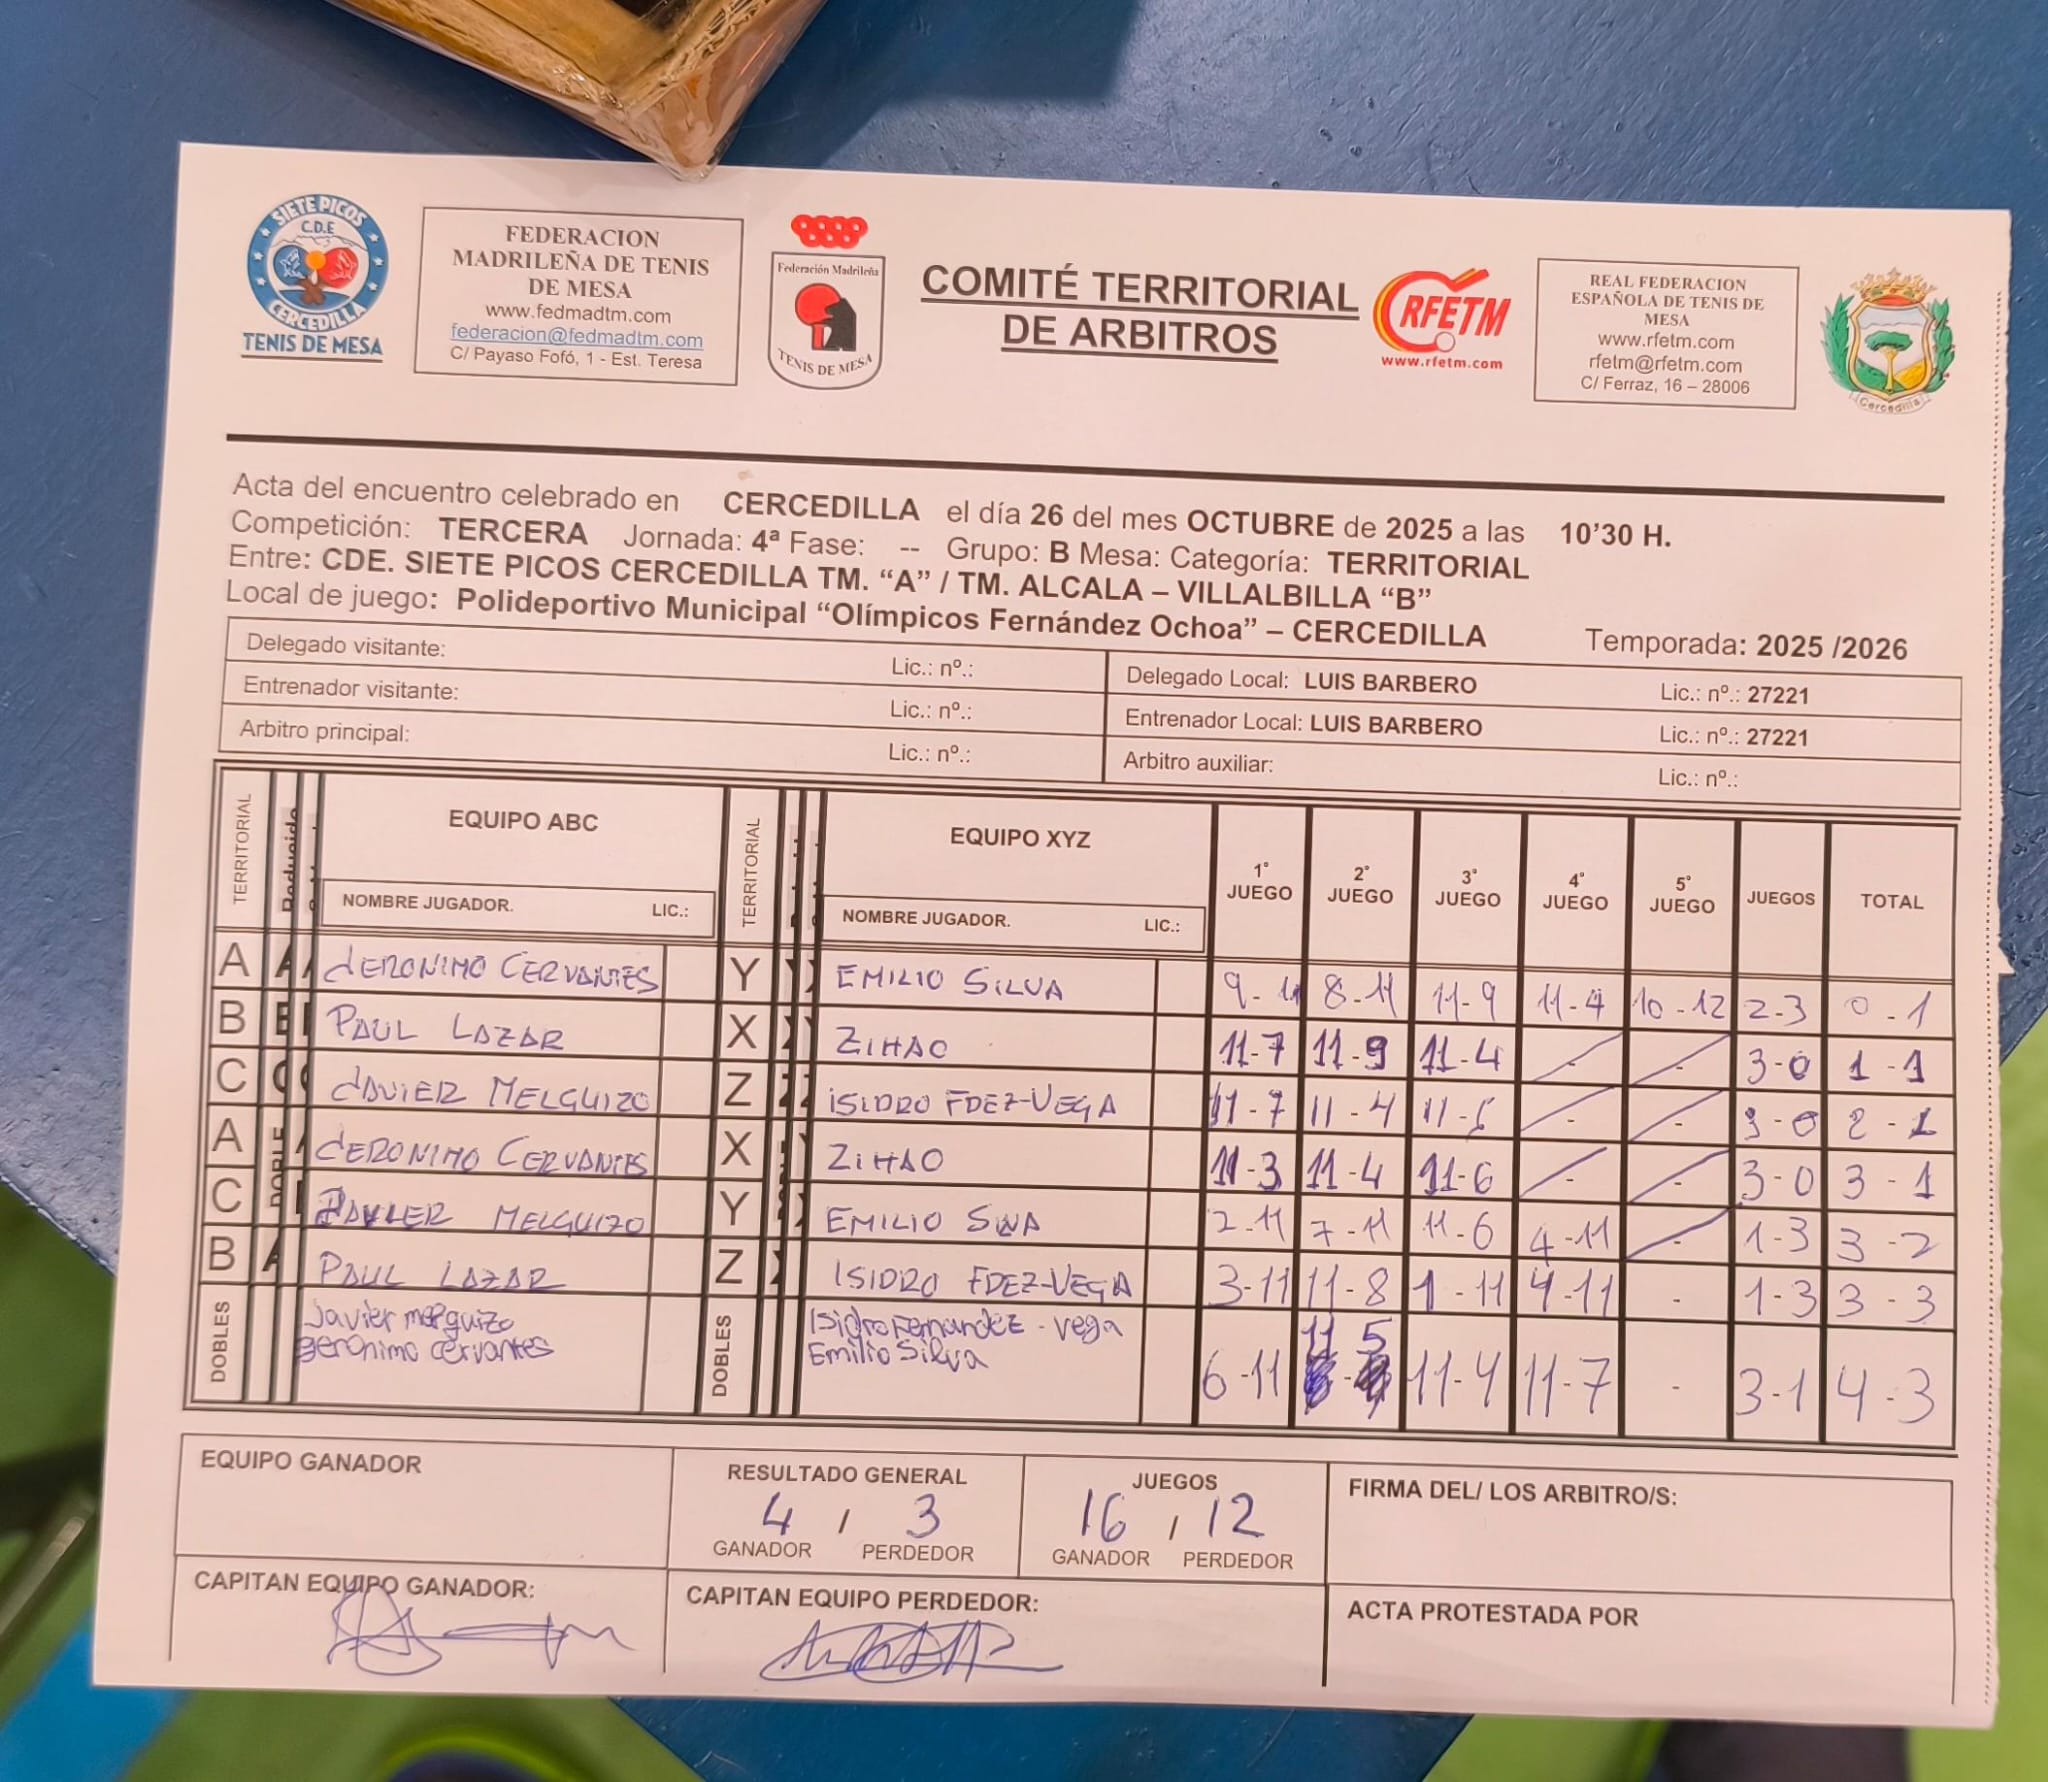 SIETE PICOS
C.D.E
CERCEDILLA
TENIS DE MESA
FEDERACION
MADRILEÑA DE TENIS
DE MESA
www.fedmadtm.com
federacion@fedmadtm.com
C/ Payaso Fofó, 1 - Est. Teresa
Federación Madrileña
TENIS DE MESA
COMITÉ TERRITORIAL
DE ARBITROS
RFETM
www.rfetm.com
REAL FEDERACION
ESPAÑOLA DE TENIS DE
MESA
www.rfetm.com
rfetm@rfetm.com
C/ Ferraz, 16 – 28006
Cercedilla
Acta del encuentro celebrado en CERCEDILLA el día 26 del mes OCTUBRE de 2025 a las 10’30 H.
Competición: TERCERA Jornada: 4ª Fase: -- Grupo: B Mesa: Categoría: TERRITORIAL
Entre: CDE. SIETE PICOS CERCEDILLA TM. “A” / TM. ALCALA – VILLALBILLA “B”
Local de juego: Polideportivo Municipal “Olímpicos Fernández Ochoa” – CERCEDILLA Temporada: 2025 /2026
Delegado visitante: Lic.: nº.: Delegado Local: LUIS BARBERO Lic.: nº.: 27221
Entrenador visitante: Lic.: nº.: Entrenador Local: LUIS BARBERO Lic.: nº.: 27221
Arbitro principal: Lic.: nº.: Arbitro auxiliar: Lic.: nº.:
TERRITORIAL EQUIPO ABC TERRITORIAL EQUIPO XYZ 1º JUEGO 2º JUEGO 3º JUEGO 4º JUEGO 5º JUEGO JUEGOS TOTAL
NOMBRE JUGADOR. LIC.: NOMBRE JUGADOR. LIC.:
A JERONIMO CERVANTES Y EMILIO SILVA 9-11 8-11 11-9 11-4 10-12 2-3 0-1
B PAUL LAZAR X ZIHAO 11-7 11-9 11-4 - - 3-0 1-1
C JAVIER MELGUIZO Z ISIDRO FDEZ-VEGA 11-7 11-4 11-6 - - 3-0 2-1
A JERONIMO CERVANTES X ZIHAO 11-3 11-4 11-6 - - 3-0 3-1
C JAVIER MELGUIZO Y EMILIO SILVA 2-11 7-11 11-6 4-11 - 1-3 3-2
B PAUL LAZAR Z ISIDRO FDEZ-VEGA 3-11 11-8 1-11 4-11 - 1-3 3-3
DOBLES Javier melguizo DOBLES Isidro Fernandez - Vega 11 5
geronimo cervantes Emilio Silva 6-11 - 11-4 11-7 - 3-1 4-3
EQUIPO GANADOR
RESULTADO GENERAL
4 / 3
GANADOR PERDEDOR
JUEGOS
16 / 12
GANADOR PERDEDOR
FIRMA DEL/ LOS ARBITRO/S:
CAPITAN EQUIPO GANADOR:
CAPITAN EQUIPO PERDEDOR:
ACTA PROTESTADA POR